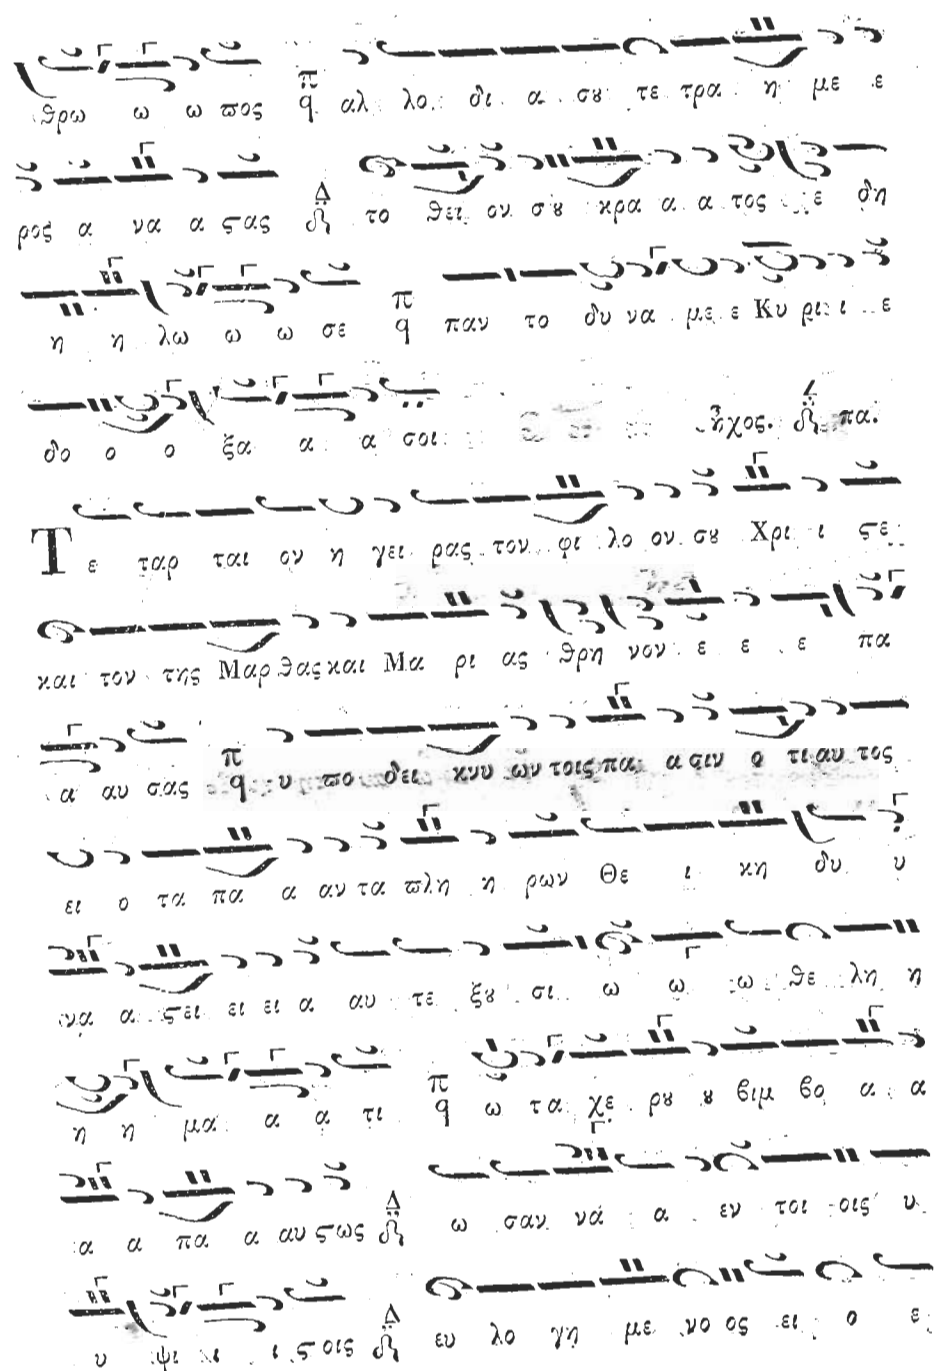 θρω ω ω ϖος π q αλ λο δι α σȣ τε τρα η με ε
ρος α να α ϛας Δ το θει ον σȣ κρα α α τος ε δη
η η λω ω ω σε π q παν το δυ να με ε Κυ ρι ι ε
δο ο ο ξα α α σοι ἦχος. πα.
Τε ταρ ται ον η γει ρας τον φι λο ον σȣ Χρι ι ϛε
και τον της Μαρ θας και Μα ρι ας θρη νον ε ε ε πα
α αυ σας π q υ ϖο δει κνυ ων τοις πα α σιν ο τι αυ τος
ει ο τα πα α αν τα ϖλη η ρων Θε ι κη δυ υ
να α ϛει ει ει α αυ τε ξȣ σι ω ω ω θε λη η
η η μα α α τι π q ω τα χε ρȣ ȣ βιμ βο α α
α α πα α αυ ϛως Δ ω σαν να α εν τοι οις υ
υ ψι ι ι ϛοις Δ ευ λο γη με νο ος ει ο ε